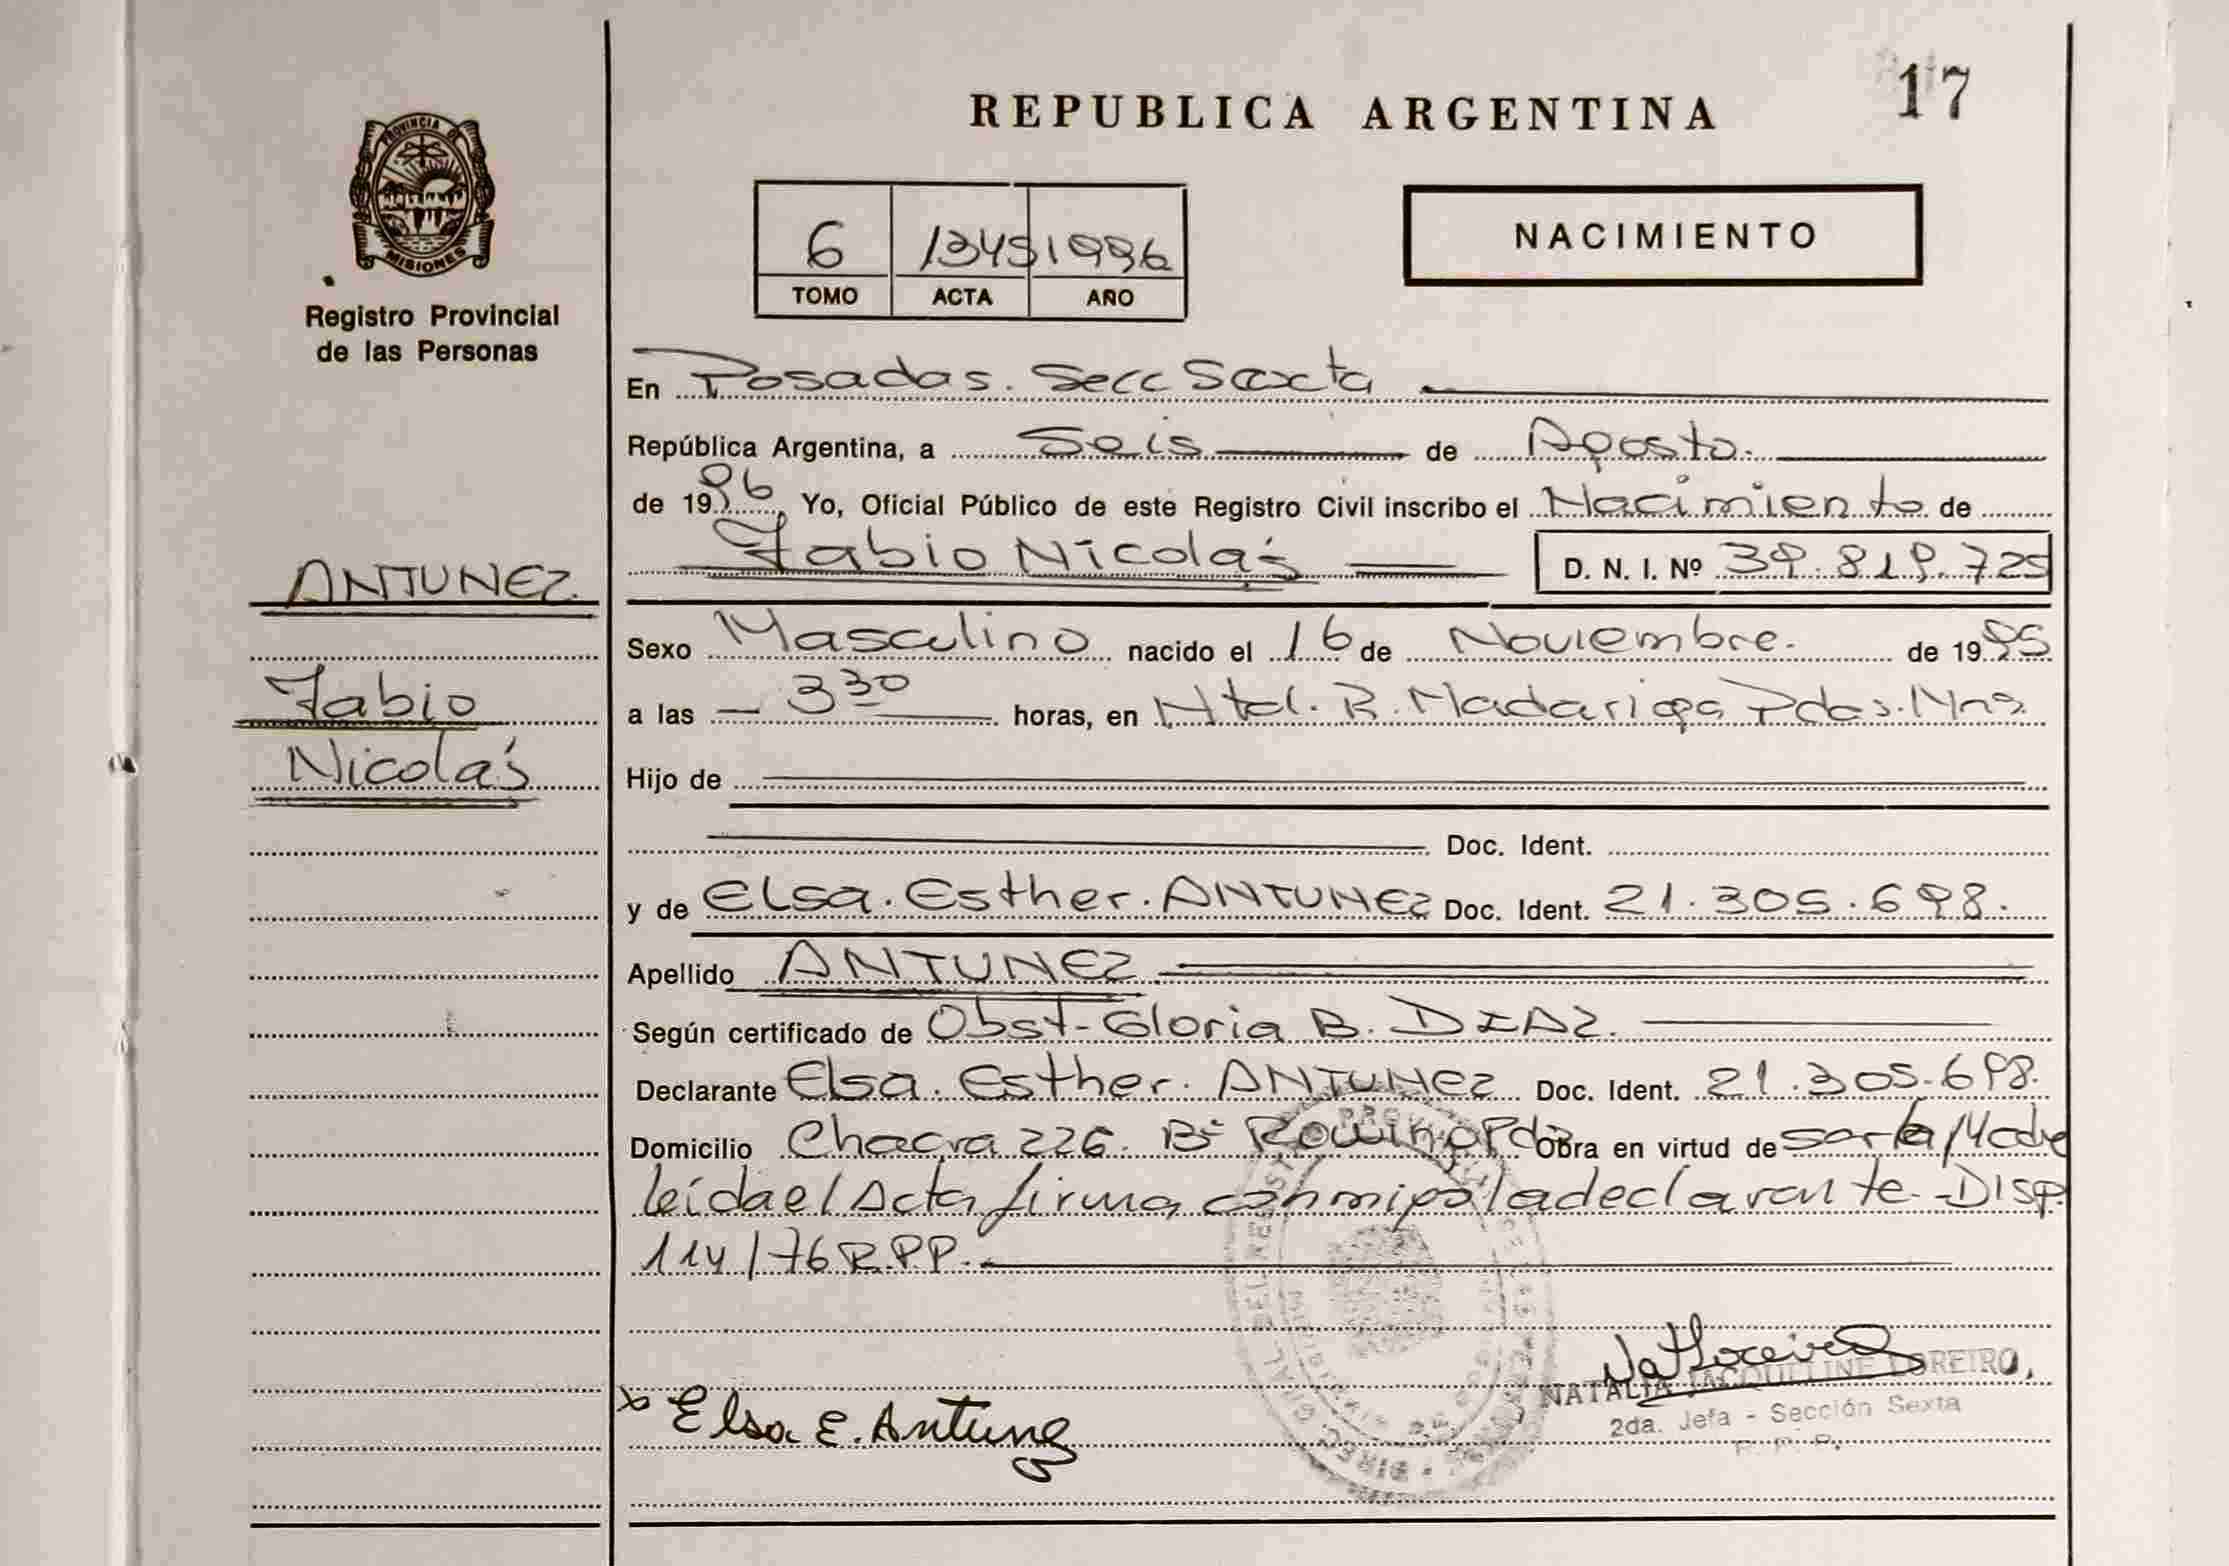 REPUBLICA ARGENTINA
17
PROVINCIA DE
MISIONES
Registro Provincial
de las Personas
6 1345 1996
TOMO ACTA AÑO
NACIMIENTO
En Posadas. Secc Sexta
República Argentina, a Seis de Agosto.
de 1996, Yo, Oficial Público de este Registro Civil inscribo el Nacimiento de
Fabio Nicolás D. N. I. Nº 39.819.725
ANTUNEZ
Fabio
Nicolás
Sexo Masculino nacido el 16 de Noviembre. de 1995
a las 3 30 horas, en Htal. R. Madariaga Pdas. Mns.
Hijo de
Doc. Ident.
y de ELsa. Esther. ANTUNEZ Doc. Ident. 21.305.698.
Apellido ANTUNEZ
Según certificado de Obst- Gloria B. DIAZ.
Declarante Elsa. Esther. ANTUNEZ Doc. Ident. 21.305.698.
Domicilio Chacra 226. Bº Pdas Obra en virtud de ser la Madre
leída el Acta firma conmigo la declarante. Disp.
114/76 R.P.P.
Elsa E. Antunez
NATALIA JACQUELINE LOREIRO,
2da. Jefa - Sección Sexta
R. P. P.